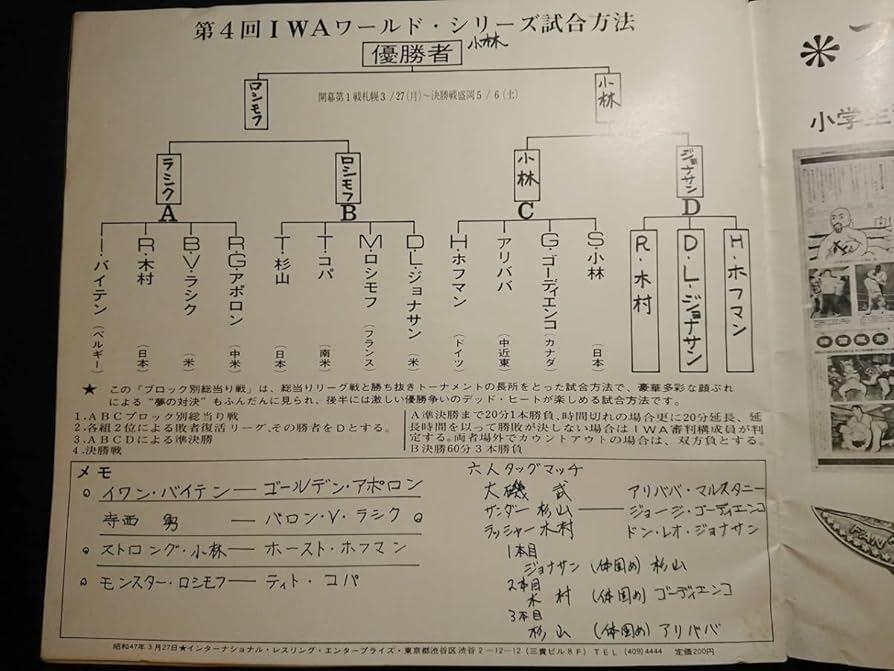 第4回IWAワールド・シリーズ試合方法
優勝者 小林
開幕第1戦札幌3/27(月)〜決勝戦盛岡5/6(土)
ロシモフ
小林
ラシク
ロシモフ
小林
ジョナサン
A
B
C
D
I・バイテン(ベルギー)
R・木村(日本)
B・V・ラシク(米)
R・G・アポロン(中米)
T・杉山(日本)
T・コパ(南米)
M・ロシモフ(フランス)
D・L・ジョナサン(米)
H・ホフマン(ドイツ)
アリババ(中近東)
G・ゴーディエンコ(カナダ)
S・小林(日本)
R・木村
D・L・ジョナサン
H・ホフマン
★ この「ブロック別総当り戦」は、総当りリーグ戦と勝ち抜きトーナメントの長所をとった試合方法で、豪華多彩な顔ぶれ
による“夢の対決”もふんだんに見られ、後半には激しい優勝争いのデッド・ヒートが楽しめる試合方法です。
1.ABCブロック別総当り戦
2.各組2位による敗者復活リーグ、その勝者をDとする。
3.ABCDによる準決勝
4.決勝戦
A準決勝まで20分1本勝負、時間切れの場合更に20分延長、延
長時間を以って勝敗が決しない場合はIWA審判構成員が判
定する。両者場外でカウントアウトの場合は、双方負とする。
B決勝60分3本勝負
メモ
○イワン・バイテン──ゴールデン・アポロン
寺西 勇──バロン・V・ラシク○
○ストロング・小林──ホースト・ホフマン
○モンスター・ロシモフ──ティト・コパ
六人タッグマッチ
大磯 武 アリババ・マルスタニー
サンダー杉山──ジョージ・ゴーディエンコ
ラッシャー木村 ドン・レオ・ジョナサン
1本目
ジョナサン(体固め)杉山
2本目
木村(体固め)ゴーディエンコ
3本目
杉山(体固め)アリババ
昭和47年3月27日★インターナショナル・レスリング・エンタープライズ・東京都渋谷区渋谷2-12-12(三貴ビル8F) TEL(409)4444 定価200円
小学生
FAN